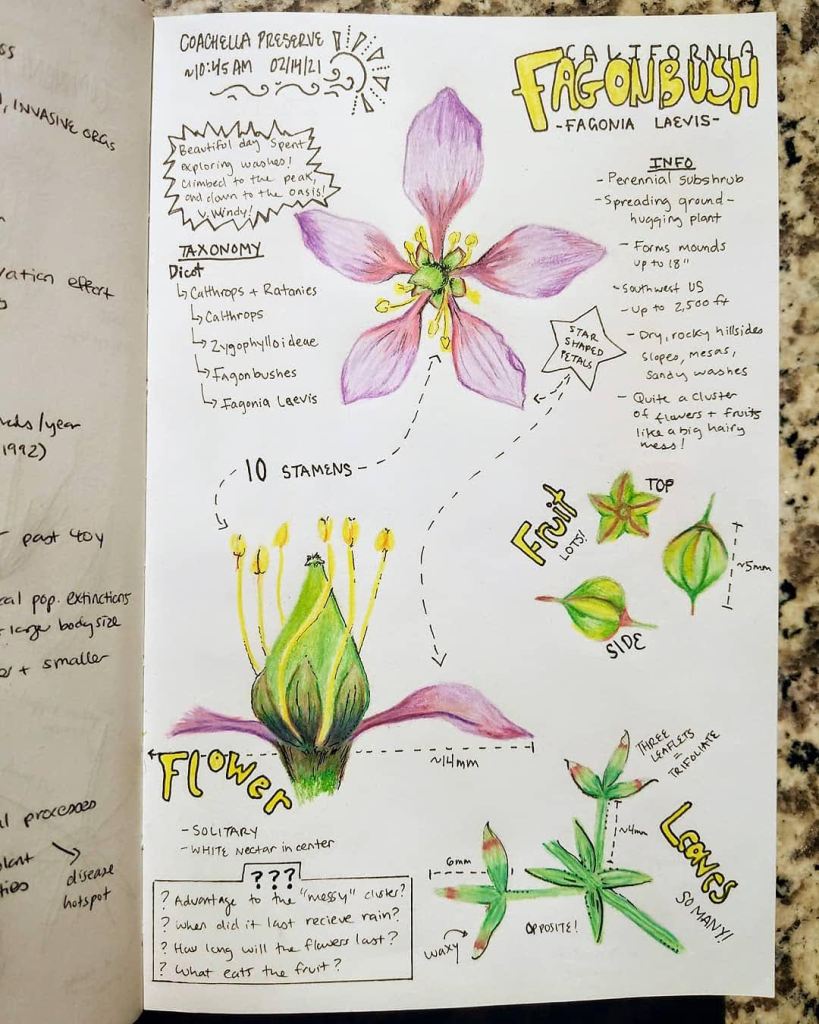 INVASIVE ORGS
vation effort
nds/year
1992)
past 40y
cal pop. extinctions
large body size
+ smaller
al processes
plant
disease
hotspot
COACHELLA PRESERVE
~10:45 AM 02/14/21
CALIFORNIA
FAGONBUSH
-FAGONIA LAEVIS-
Beautiful day spent
exploring washes!
Climbed to the peak,
and down to the oasis!
V. Windy!
TAXONOMY
Dicot
↳Calthrops + Ratanies
↳Calthrops
↳Zygophylloideae
↳Fagonbushes
↳Fagonia Laevis
INFO
- Perennial subshrub
- Spreading ground-
hugging plant
- Forms mounds
up to 18"
- Southwest US
- up to 2,500 ft
- Dry, rocky hillsides
slopes, mesas,
sandy washes
- Quite a cluster
of flowers + fruits
like a big hairy
mess!
STAR
SHAPED
PETALS
10 STAMENS
Fruit
LOTS!
TOP
~5mm
SIDE
~14mm
Flower
- SOLITARY
- WHITE nectar in center
???
? Advantage to the "messy" cluster?
? When did it last recieve rain?
? How long will the flowers last?
? What eats the fruit?
THREE
LEAFLETS
=
TRIFOLIATE
~4mm
6mm
Leaves
SO MANY!
OPPOSITE!
waxy